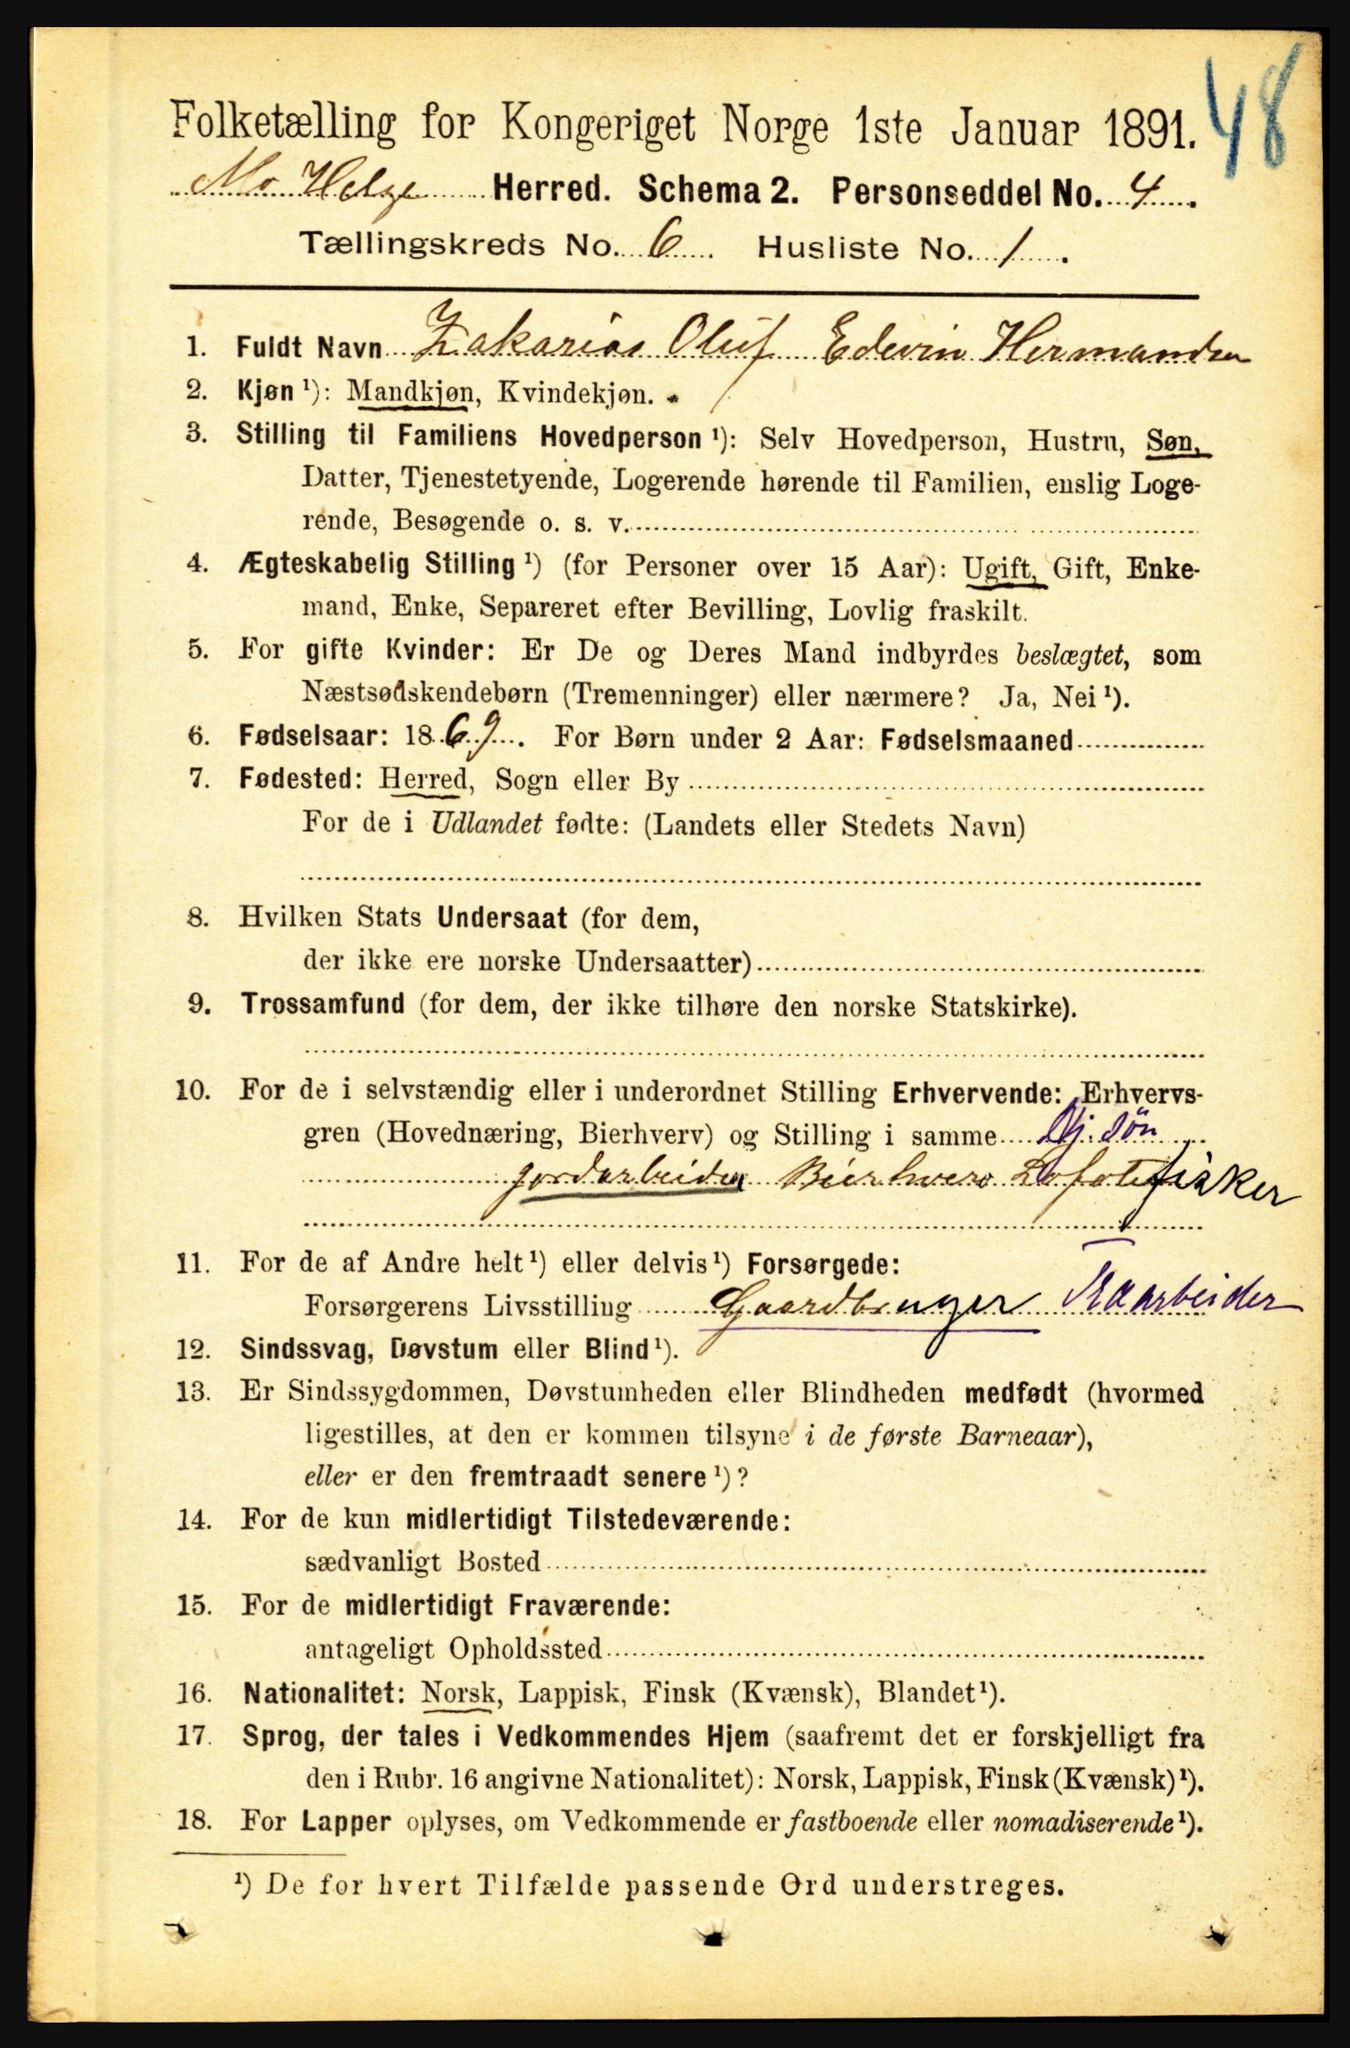 48
Folketælling for Kongeriget Norge 1ste Januar 1891.
Mo Helge Herred. Schema 2. Personseddel No. 4.
Tællingskreds No. 6. Husliste No. 1.
1. Fuldt Navn Zakarias Oluf Edevin Hermandsen
2. Kjøn ¹): Mandkjøn, Kvindekjøn.
3. Stilling til Familiens Hovedperson ¹): Selv Hovedperson, Hustru, Søn,
Datter, Tjenestetyende, Logerende hørende til Familien, enslig Loge-
rende, Besøgende o. s. v.
4. Ægteskabelig Stilling ¹) (for Personer over 15 Aar): Ugift, Gift, Enke-
mand, Enke, Separeret efter Bevilling, Lovlig fraskilt.
5. For gifte Kvinder: Er De og Deres Mand indbyrdes beslægtet, som
Næstsødskendebørn (Tremenninger) eller nærmere? Ja, Nei ¹).
6. Fødselsaar: 1869. For Børn under 2 Aar: Fødselsmaaned
7. Fødested: Herred, Sogn eller By
For de i Udlandet fødte: (Landets eller Stedets Navn)
8. Hvilken Stats Undersaat (for dem,
der ikke ere norske Undersaatter)
9. Trossamfund (for dem, der ikke tilhøre den norske Statskirke).
10. For de i selvstændig eller i underordnet Stilling Erhvervende: Erhvervs-
gren (Hovednæring, Bierhverv) og Stilling i samme Gj. søn
jordarbeider Bierhverv Lofotfisker
11. For de af Andre helt ¹) eller delvis ¹) Forsørgede:
Forsørgerens Livsstilling Gaardbruger Træarbeider
12. Sindssvag, Døvstum eller Blind ¹).
13. Er Sindssygdommen, Døvstumheden eller Blindheden medfødt (hvormed
ligestilles, at den er kommen tilsyne i de første Barneaar),
eller er den fremtraadt senere ¹)?
14. For de kun midlertidigt Tilstedeværende:
sædvanligt Bosted
15. For de midlertidigt Fraværende:
antageligt Opholdssted
16. Nationalitet: Norsk, Lappisk, Finsk (Kvænsk), Blandet ¹).
17. Sprog, der tales i Vedkommendes Hjem (saafremt det er forskjelligt fra
den i Rubr. 16 angivne Nationalitet): Norsk, Lappisk, Finsk (Kvænsk) ¹).
18. For Lapper oplyses, om Vedkommende er fastboende eller nomadiserende ¹).
¹) De for hvert Tilfælde passende Ord understreges.